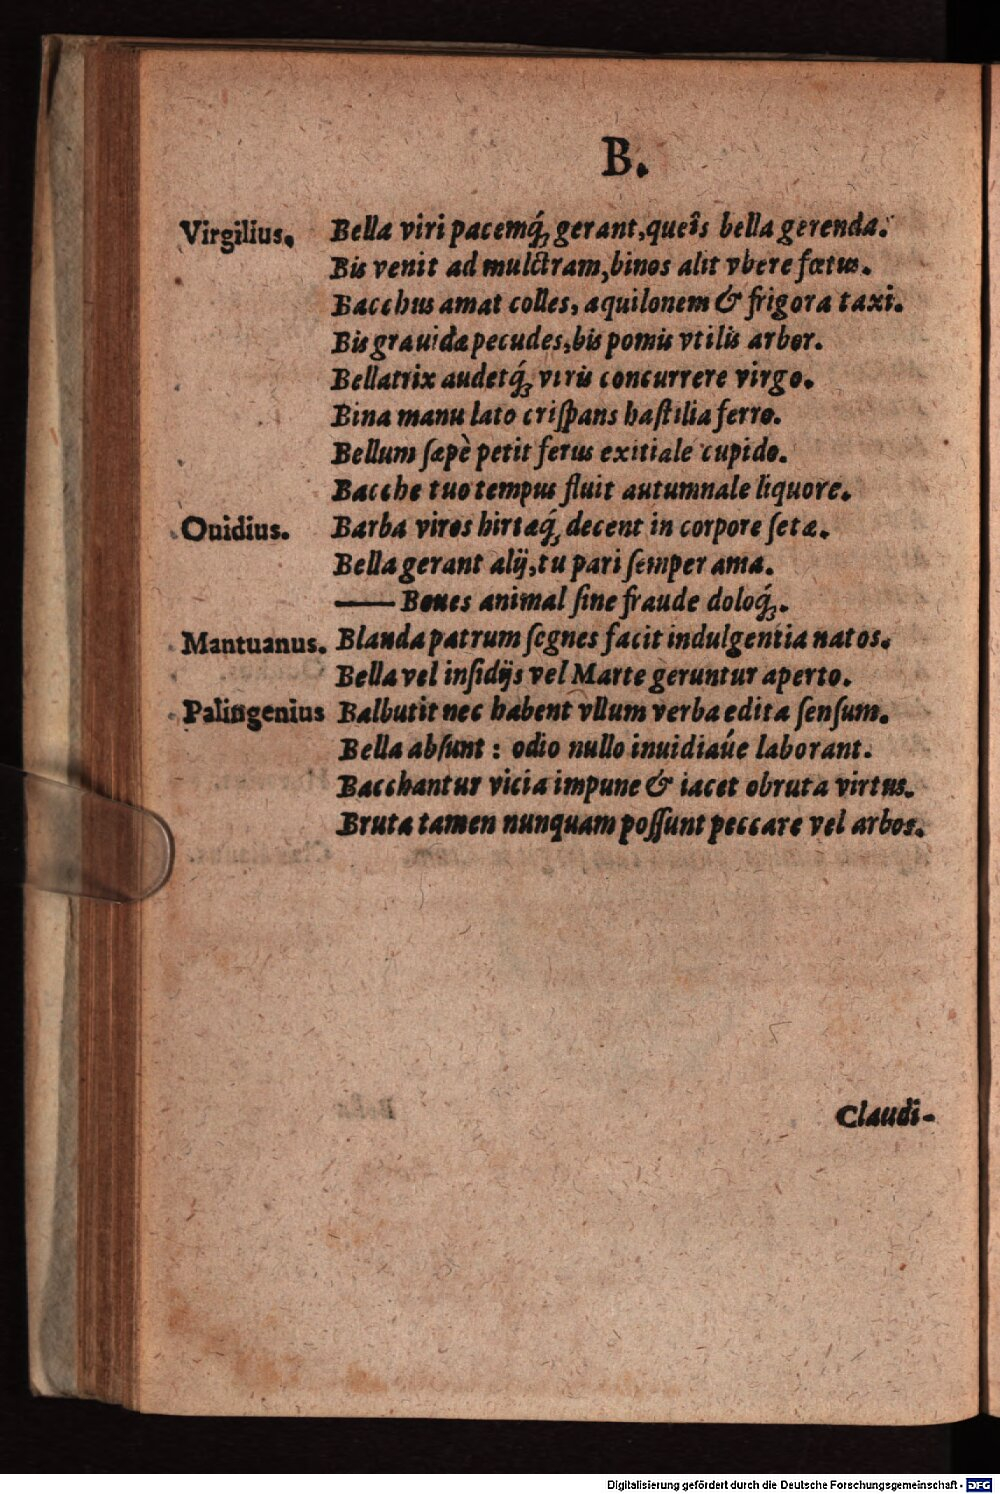 B.
Virgilius. Bella viri pacemq́; gerant, queîs bella gerenda.
Bis venit ad mulctram, binos alit vbere fœtus.
Bacchus amat colles, aquilonem & frigora taxi.
Bis grauida pecudes, bis pomis vtilis arbor.
Bellatrix audetq́; viris concurrere virgo.
Bina manu lato criſpans haſtilia ferro.
Bellum ſæpè petit ferus exitiale cupido.
Bacche tuo tempus fluit autumnale liquore.
Ouidius. Barba viros hirtæq́; decent in corpore ſetæ.
Bella gerant alij, tu pari ſemper ama.
—— Boues animal ſine fraude doloq́;.
Mantuanus. Blanda patrum ſegnes facit indulgentia natos.
Bella vel inſidijs vel Marte geruntur aperto.
Palingenius Balbutit nec habent vllum verba edita ſenſum.
Bella abſunt: odio nullo inuidiaúe laborant.
Bacchantur vicia impune & iacet obruta virtus.
Bruta tamen nunquam poſſunt peccare vel arbos.
Claudi-
Digitalisierung gefördert durch die Deutsche Forschungsgemeinschaft - DFG